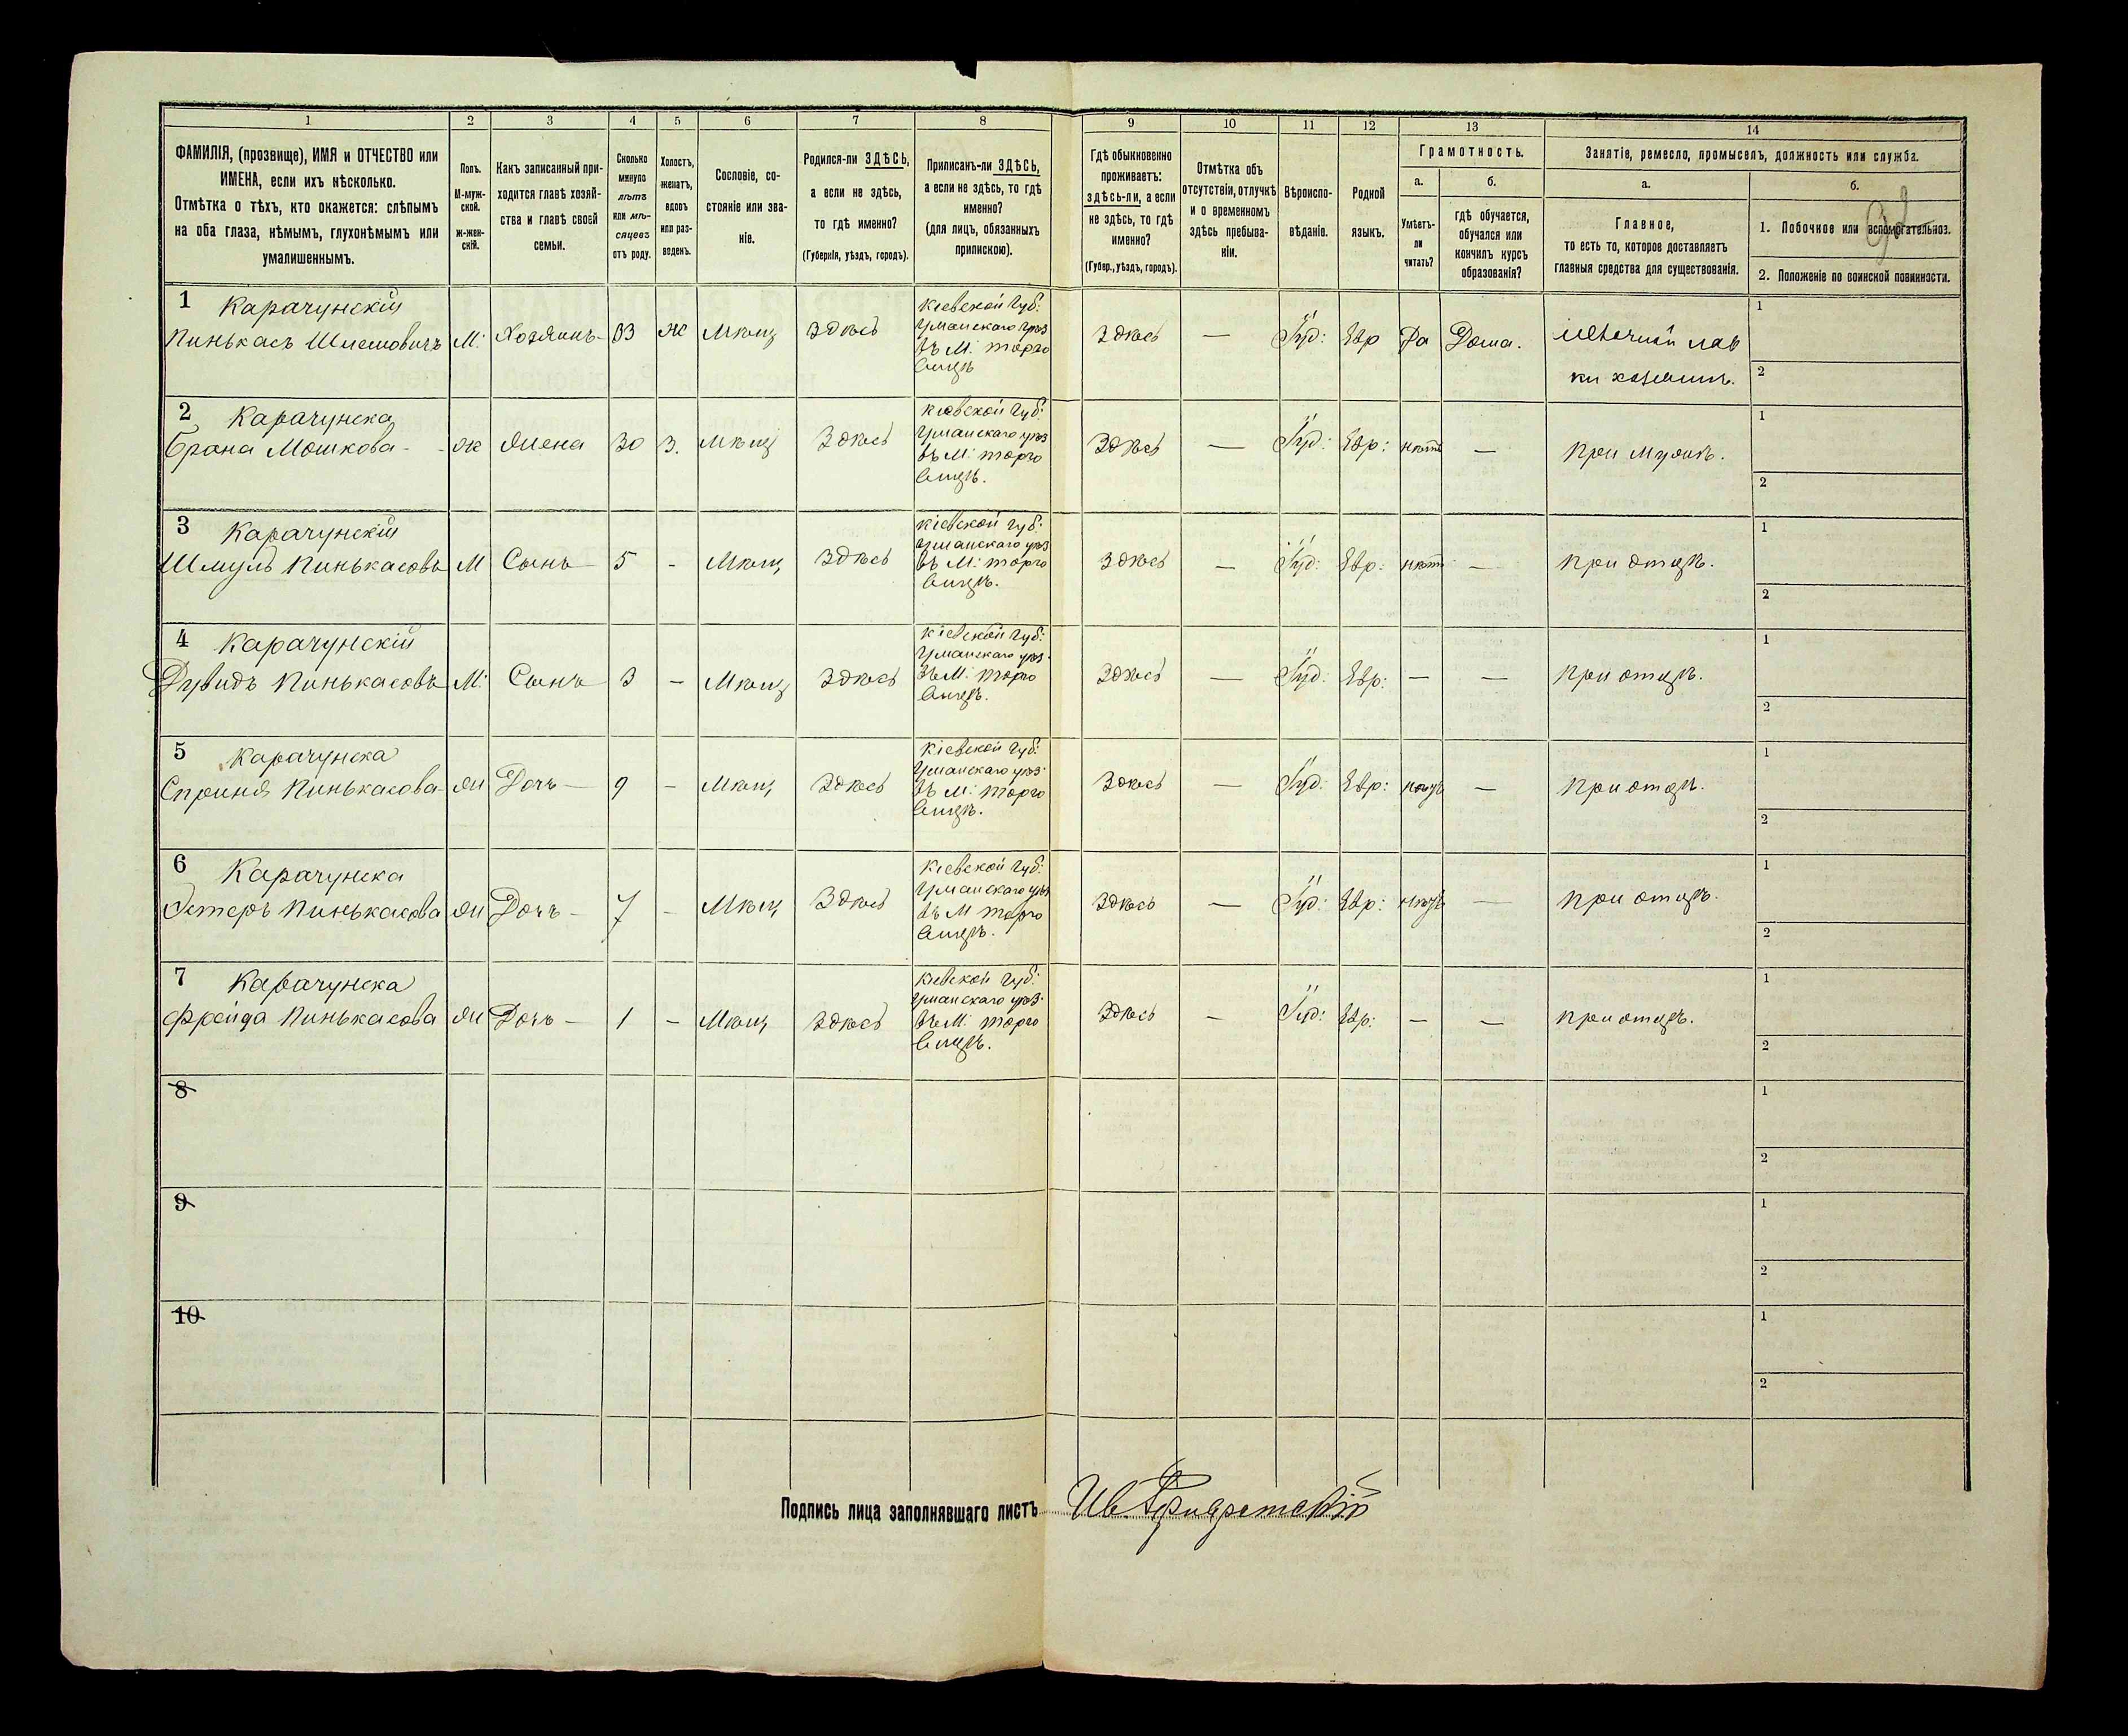 1 2 3 4 5 6 7 8 9 10 11 12 13 14
ФАМИЛІЯ, (прозвище), ИМЯ и ОТЧЕСТВО или
ИМЕНА, если ихъ нѣсколько.
Отмѣтка о тѣхъ, кто окажется: слѣпымъ
на оба глаза, нѣмымъ, глухонѣмымъ или
умалишеннымъ.
Полъ.
М-муж-
ской.
ж-жен-
скій.
Какъ записанный при-
ходится главѣ хозяй-
ства и главѣ своей
семьи.
Сколько
минуло
лѣтъ
или мѣ-
сяцевъ
отъ роду.
Холостъ,
женатъ,
вдовъ
или раз-
веденъ.
Сословіе, со-
стояніе или зва-
ніе.
Родился-ли ЗДѢСЬ,
а если не здѣсь,
то гдѣ именно?
(Губернія, уѣздъ, городъ).
Приписанъ-ли ЗДѢСЬ,
а если не здѣсь, то гдѣ
именно?
(для лицъ, обязанныхъ
припискою).
Гдѣ обыкновенно
проживаетъ:
здѣсь-ли, а если
не здѣсь, то гдѣ
именно?
(Губер., уѣздъ, городъ).
Отмѣтка объ
отсутствіи, отлучкѣ
и о временномъ
здѣсь пребыва-
ніи.
Вѣроиспо-
вѣданіе.
Родной
языкъ.
Грамотность.
а.
Умѣетъ-
ли
читать?
б.
гдѣ обучается,
обучался или
кончилъ курсъ
образованія?
Занятіе, ремесло, промыселъ, должность или служба.
а.
Главное,
то есть то, которое доставляетъ
главныя средства для существованія.
б.
1. Побочное или вспомогательное.
2. Положеніе по воинской повинности.
1 Карачунскій
Пинькасъ Шлемовичъ М. Хозяинъ 33 ж Мѣщ Здѣсь
Кіевской губ:
Уманскаго уѣз
въ М. торго
вицѣ
Здѣсь — Іуд: Евр Да Дома.
лав
ки хозяинъ.
1
2
2 Карачунска
Брана Мошкова - ж Жена 30 З. Мѣщ Здѣсь
Кіевской губ:
Уманскаго уѣз
въ М. торго
вицѣ.
Здѣсь — Іуд: Евр: нѣтъ — при мужѣ.
1
2
3 Карачунскій
Шмуль Пинькасовъ М Сынъ 5 - Мѣщ Здѣсь
Кіевской губ:
Уманскаго уѣз
въ М. торго
вицѣ.
Здѣсь — Іуд: Евр: нѣтъ — при отцѣ.
1
2
4 Карачунскій
Дувидъ Пинькасовъ М. Сынъ 3 - Мѣщ Здѣсь
Кіевской губ:
Уманскаго уѣз.
въ М. торго
вицѣ.
Здѣсь — Іуд: Евр: — — при отцѣ.
1
2
5 Карачунска
Сприня Пинькасова ж Дочь — 9 - Мѣщ Здѣсь
Кіевской губ:
Уманскаго уѣз.
въ М. торго
вицѣ.
Здѣсь — Іуд: Евр: — при отцѣ.
1
2
6 Карачунска
Эстеръ Пинькасова ж Дочь - 7 - Мѣщ Здѣсь
Кіевской губ:
Уманскаго уѣз
въ М торго
вицѣ.
Здѣсь — Іуд: Евр: — при отцѣ.
1
2
7 Карачунска
Фрейда Пинькасова ж Дочь - 1 - Мѣщ Здѣсь
Кіевской губ:
Уманскаго уѣз.
въ М. торго
вицѣ.
Здѣсь — Іуд: Евр: — — при отцѣ.
1
2
8
1
2
9
1
2
10
1
2
Подпись лица заполнявшаго листъ Ив.